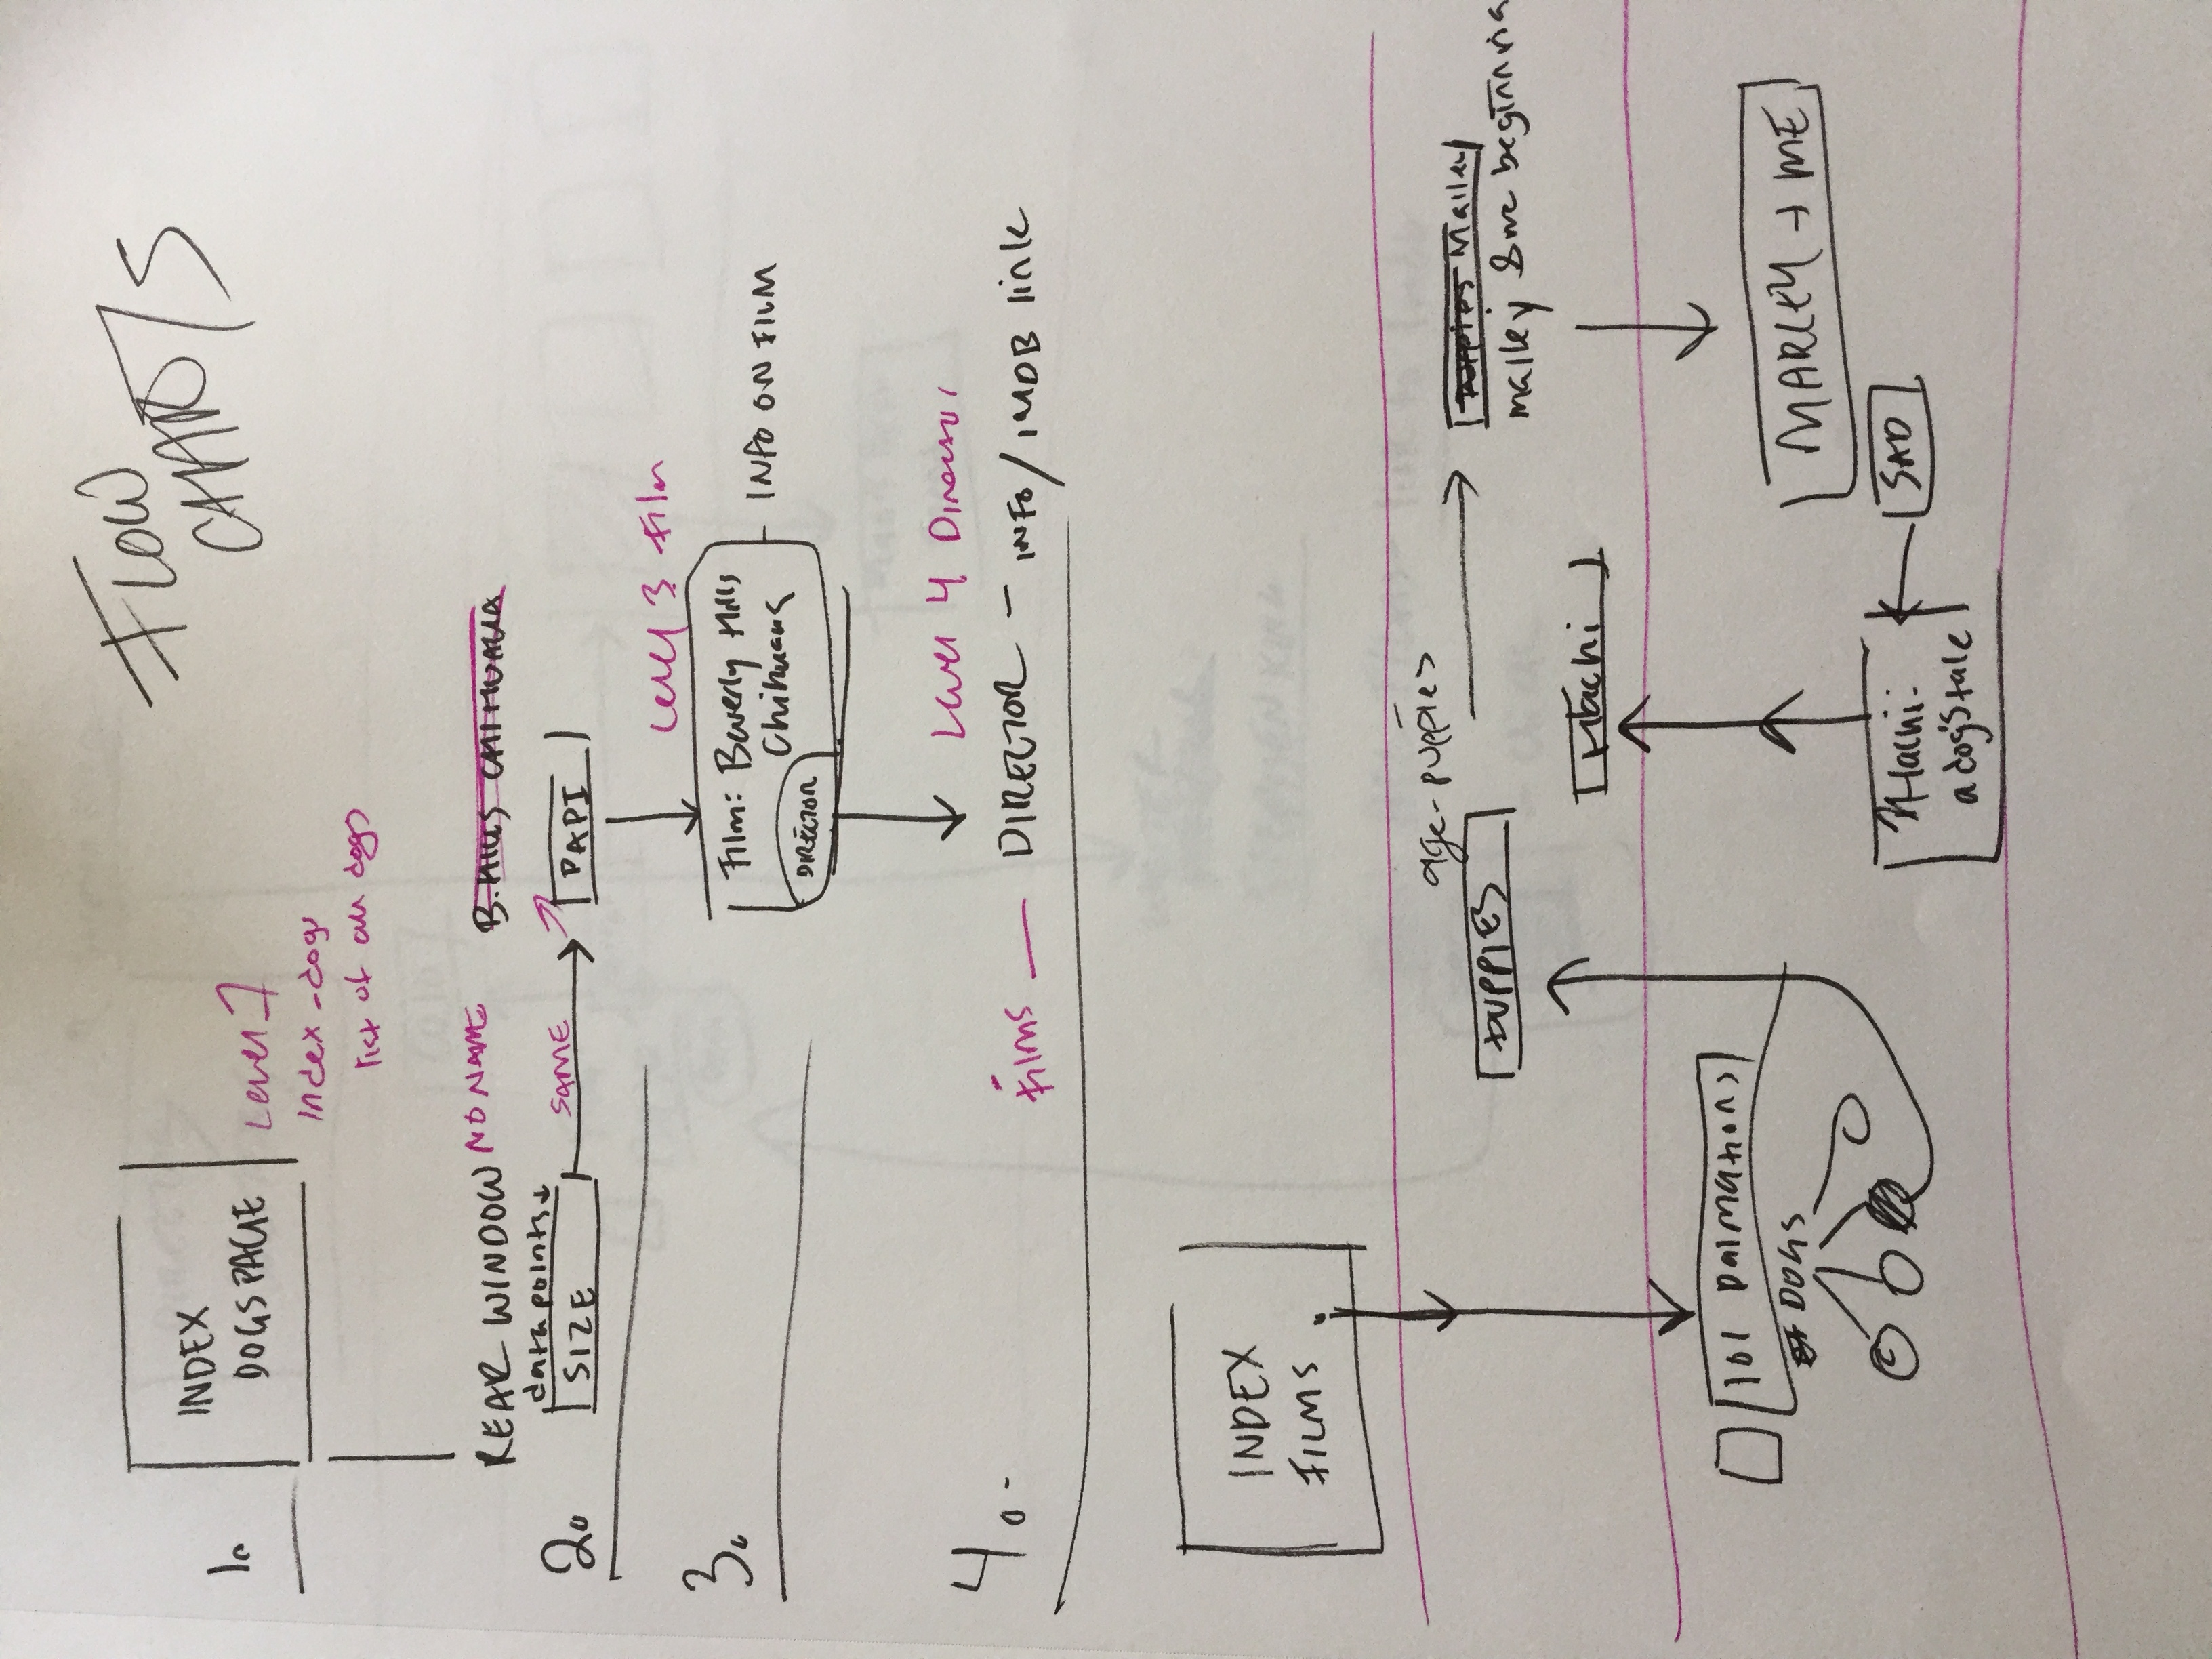 FLOW
CHARTS
1.
INDEX
DOGS PAGE
Level 1
Index-dogs
list of all dogs
REAR WINDOW NO NAME
B. HILLS CHIHUAUA
data points
2.
SIZE
SAME
PAPI
Level 3 Film
3.
Film: Beverly Hills
Chihuaua
DIRECTOR
INFO ON FILM
Level 4 Director
4.
Films — DIRECTOR - INFO / IMDB link
INDEX
FILMS
age-puppies
PUPPIES
puppies Malley
malley & me beginning
Hachi
101 Dalmations
DOGS
MARLEY + ME
Hachi:
a dog's tale
SAD